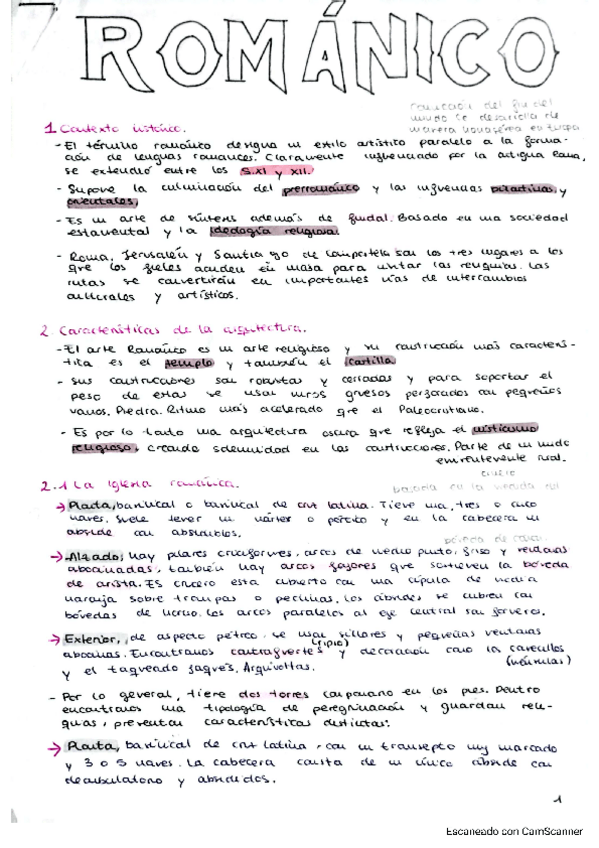 ROMÁNICO
mundo se desarrolla de
1 Contexto histórico.
- El término románico designa un estilo artístico paralelo a la forma-
ción de lenguas romances. Claramente influenciado por la antigua Roma,
se extendió entre los S.XI y XII.
- Supone la culminación del prerrománico y las influencias bizantinas y
orientales.
- Es un arte de síntesis además de feudal. Basado en una sociedad
estamental y la ideología religiosa.
- Roma, Jerusalén y Santiago de Compostela son los tres lugares a los
que los fieles acuden en masa para visitar las reliquias. Las
rutas se convertirán en importantes vías de intercambios
culturales y artísticos.
2. Características de la arquitectura.
- El arte Románico es un arte religioso y su construcción más caracterís-
tica es el templo y también el castillo.
- Sus construcciones son robustas y cerradas y para soportar el
peso de estas se usan muros gruesos perforados con pequeños
vanos. Piedra. Ritmo más acelerado que el Paleocristiano.
- Es por lo tanto una arquitectura oscura que refleja el misticismo
religioso, creando solemnidad en las construcciones. Parte de un mundo
eminentemente rural.
crucero
2.1 La Iglesia románica.
→ Planta, basilical o basilical de cruz latina. Tiene una, tres o cinco
naves. Suele tener un nártex o pórtico y en la cabecera un
ábside con absidiolos.
→ Alzado; hay pilares cruciformes, arcos de medio punto, friso y ventanas
abocinadas, también hay arcos fajones que sostienen la bóveda
de arista. El crucero esta cubierto con una cúpula de media
naranja sobre trompas o pechinas. Los ábsides se cubren con
bóvedas de horno. Los arcos paralelos al eje central son formeros.
→ Exterior, de aspecto pétreo. Se usan sillares y pequeñas ventanas
(ripio)
abocinas. Encontramos contrafuertes y decoración como la canecillos
y el taqueado jaqués. Arquivoltas. (ménsulas)
- Por lo general, tiene dos torres campanario en los pies. Dentro
encontramos una tipología de peregrinación y guardan reli-
quias, presentan características distintas:
→ Planta, basilical de cruz latina, con un transepto muy marcado
y 3 o 5 naves. La cabecera consta de un único ábside con
deambulatorio y absidiolos.
1
Escaneado con CamScanner